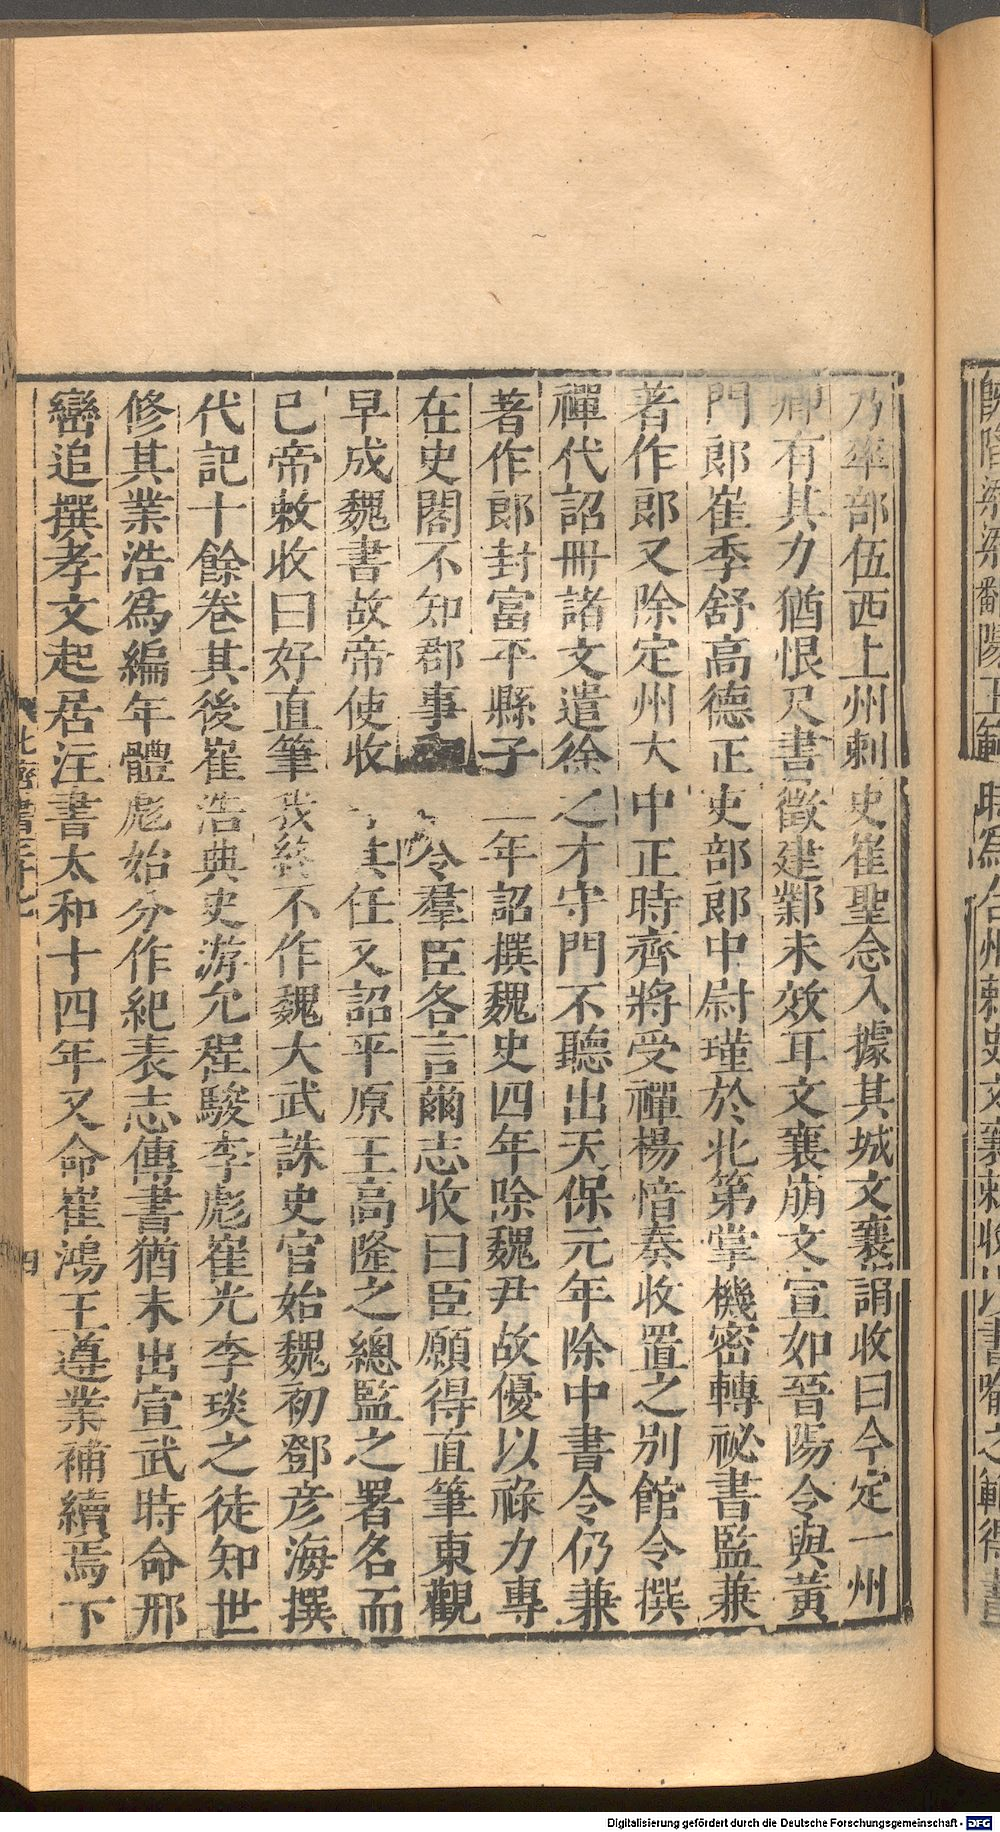 既階梁梁鄱陽王範時為合州刺史文襄敕收以書喻之範得書
乃率部伍西上州刺史崔聖念入據其城文襄謂收曰今定一州
卿有其力猶恨尺書徵建鄴未效耳文襄崩文宣如晉陽令與黃
門郎崔季舒高德正吏部郎中尉瑾於北第掌機密轉祕書監兼
著作郎又除定州大中正時齊將受禪楊愔奏收置之別館令撰
禪代詔冊諸文遣徐之才守門不聽出天保元年除中書令仍兼
著作郎封富平縣子二年詔撰魏史四年除魏尹故優以祿力專
在史閣不知郡事 令羣臣各言爾志收曰臣願得直筆東觀
早成魏書故帝使收 其任又詔平原王高隆之總監之署名而
已帝敕收曰好直筆我終不作魏大武誅史官始魏初鄧彥海撰
代記十餘卷其後崔浩典史游允程駿李彪崔光李琰之徒知世
修其業浩為編年體彪始分作紀表志傳書猶未出宣武時命邢
巒追撰孝文起居注書太和十四年又命崔鴻王遵業補續焉下
北齊書三十七
四
Digitalisierung gefördert durch die Deutsche Forschungsgemeinschaft - DFG